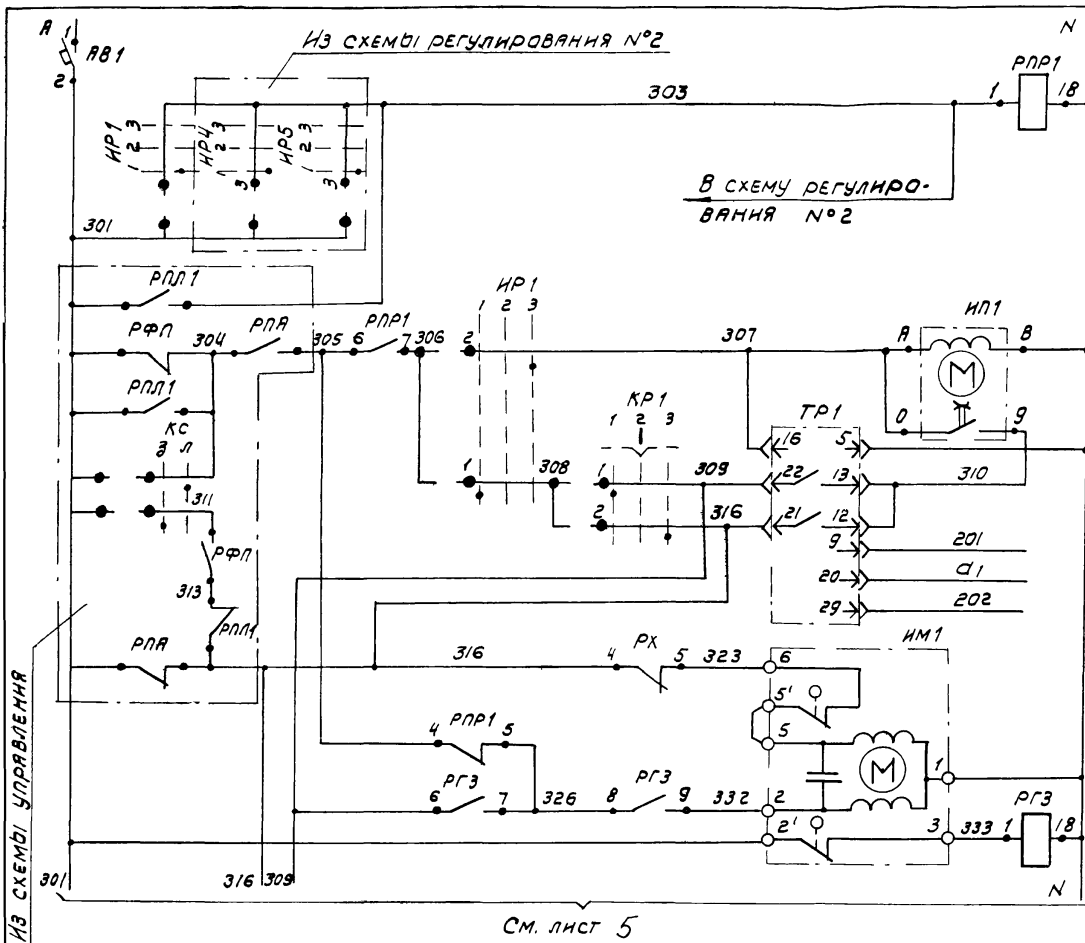 А 1
АВ1
2
N
Из схемы регулирования №2
303
РПР1
1
18
ИР1
1 2 3
ИР4
1 2 3
ИР5
1 2 3
3
3
В схему регулиро-
вания №2
301
РПЛ1
РФП
304
РПА
305
6
РПР1
7
306
2
ИР1
1 2 3
307
ИП1
А
В
М
0
9
РПЛ1
КС
З Л
311
РФП
313
РПЛ1
1
308
КР1
1 2 3
1
2
309
316
ТР1
16
5
22
13
310
21
12
9
201
20
d1
29
202
РПА
316
4
РХ
5
323
ИМ1
6
5'
5
М
1
2
2'
3
4
РПР1
5
6
РГ3
7
326
8
РГ3
9
332
333
1
РГ3
18
N
Из схемы управления
301
316
309
См. лист 5